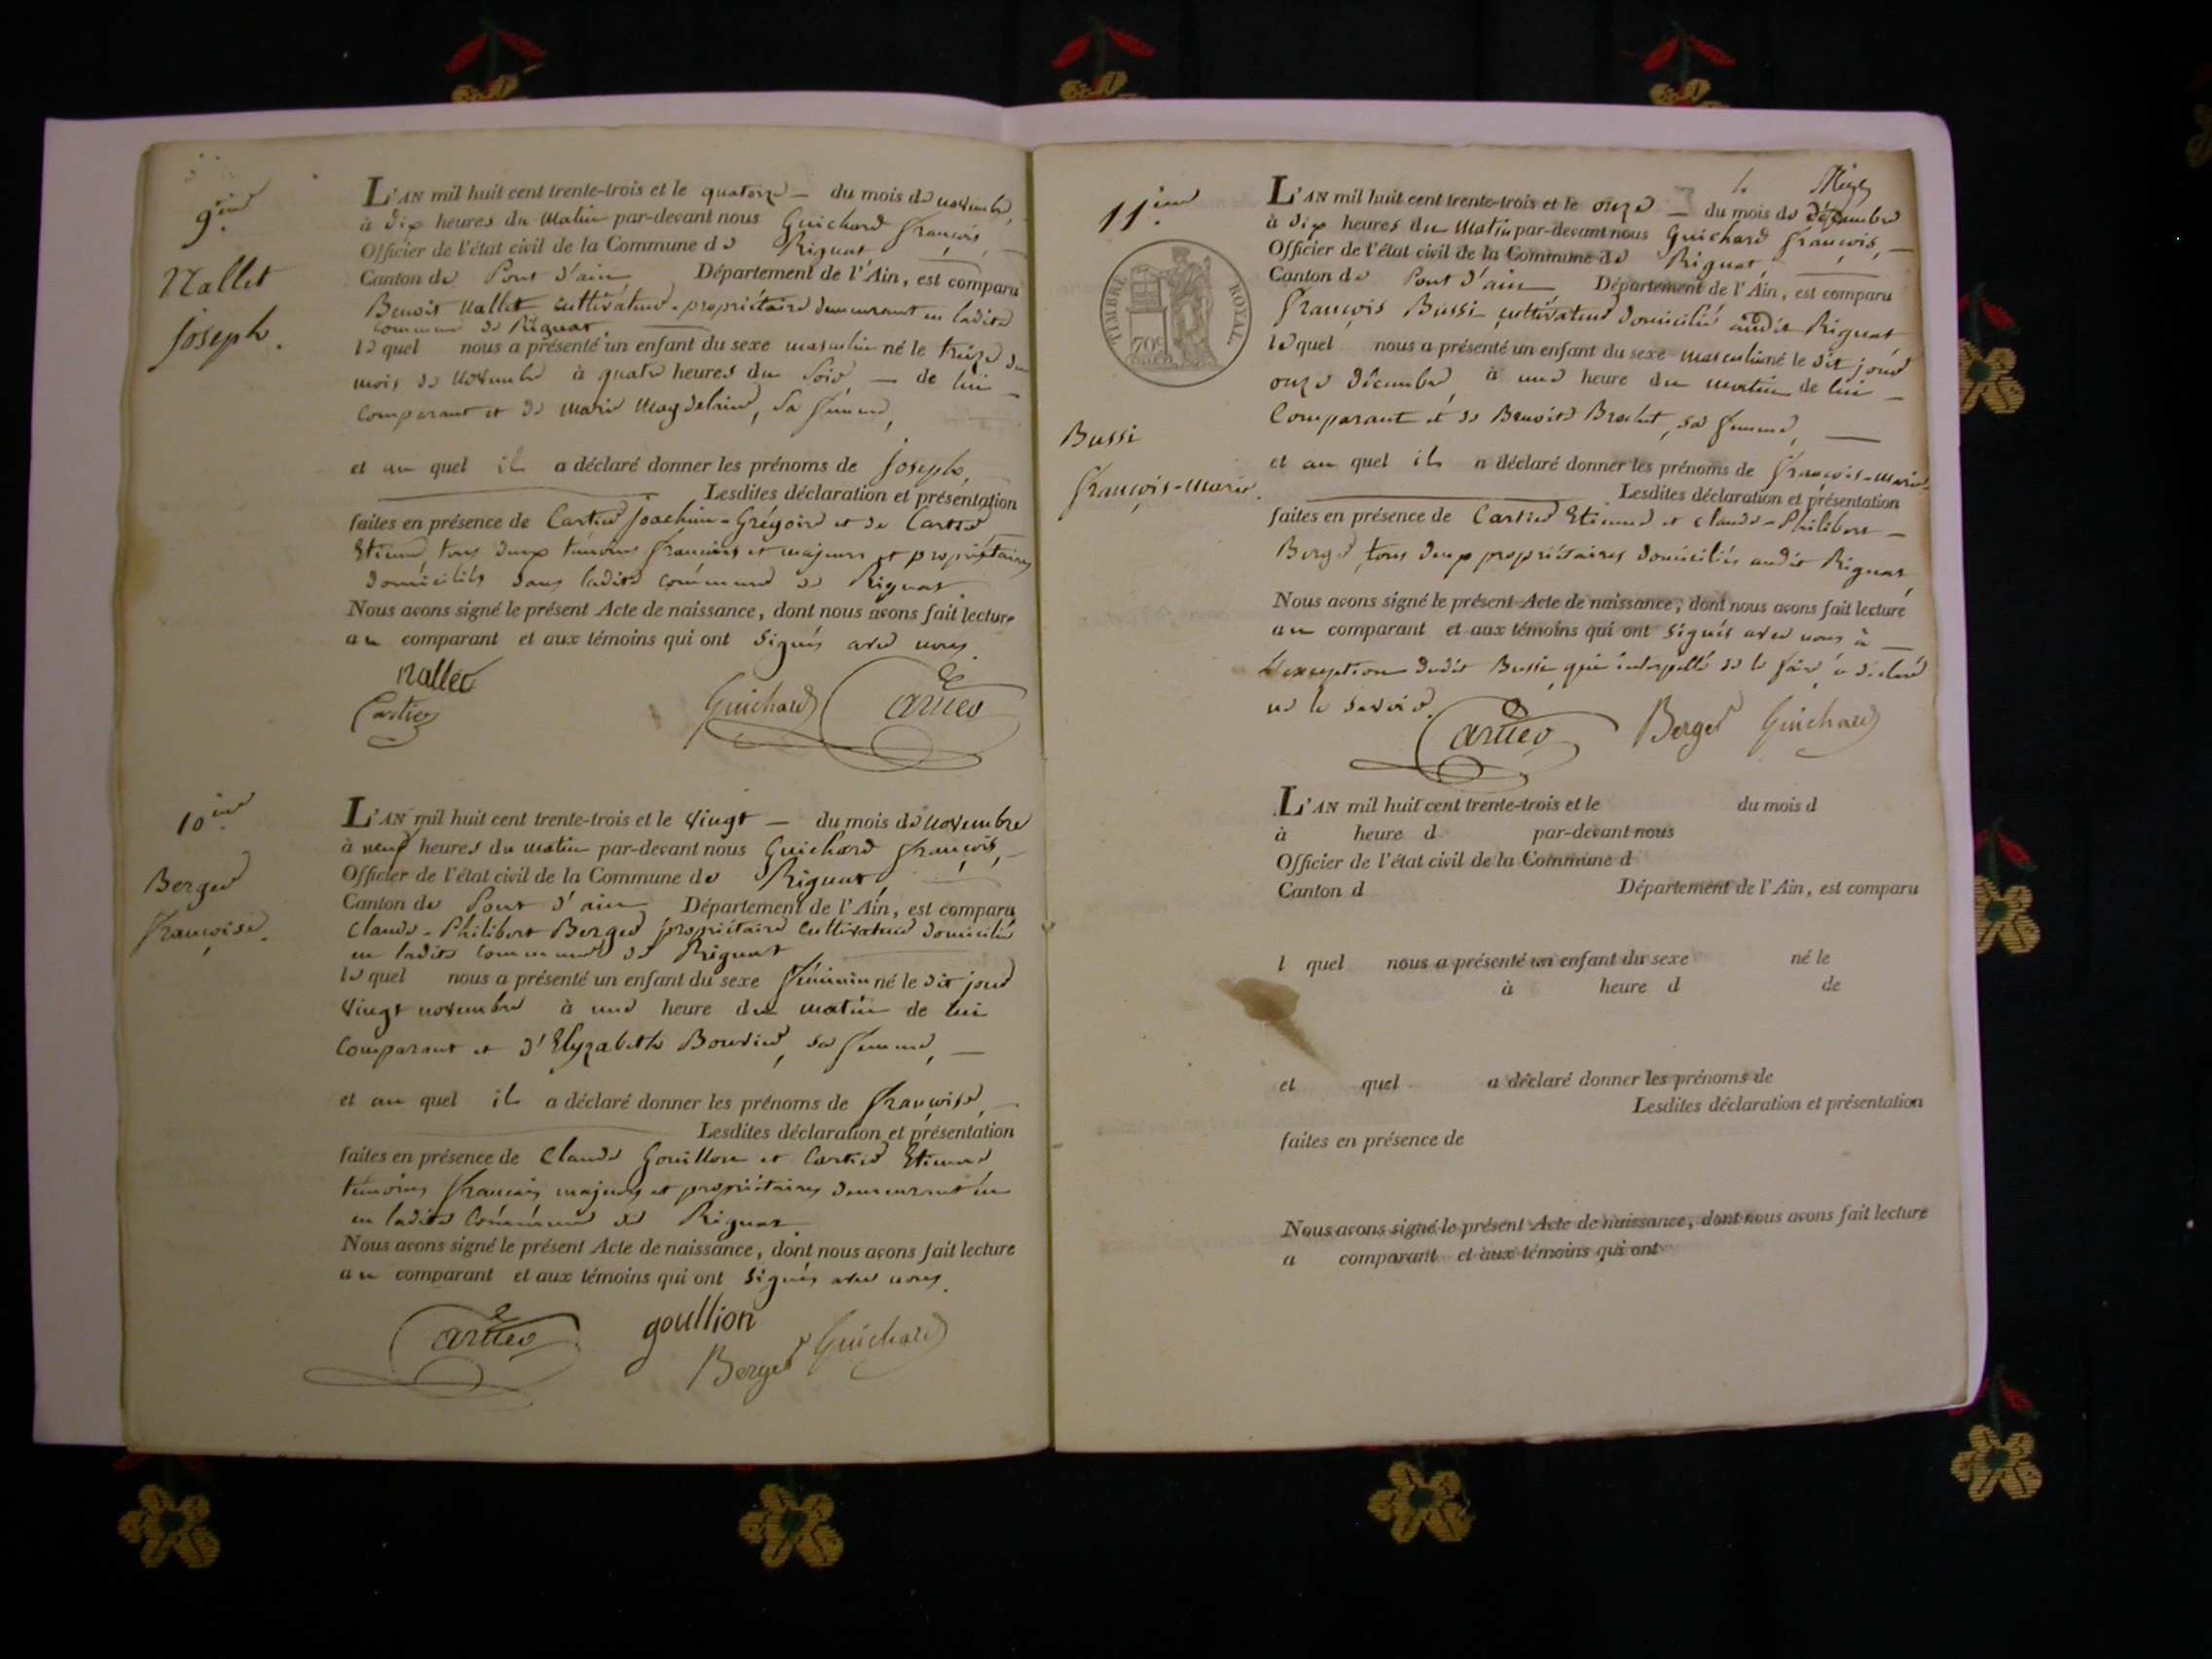 9.ième
Nallet
Joseph.
L'AN mil huit cent trente-trois et le quatorze – du mois de novembre,
à dix heures du matin par-devant nous Guichard françois,
Officier de l'état civil de la Commune de Rignat,
Canton de Pont d'ain Département de l'Ain, est comparu
Benoit Nallet cultivateur-propriétaire demeurant en ladite
commune de Rignat.
lequel nous a présenté un enfant du sexe masculin né le treize du
mois de Novembre à quatre heures du soir, — de lui –
comparant et de marie Magdelaine, sa femme,
et au quel il a déclaré donner les prénoms de joseph,
Lesdites déclaration et présentation
faites en présence de Cartier Joachim-Grégoire et de Cartier
Etienne, tous deux témoins français et majeurs et propriétaires
domiciliés dans ladite commune de Rignat.
Nous avons signé le présent Acte de naissance, dont nous avons fait lecture
au comparant et aux témoins qui ont signés avec nous.
Nallet
Cartier Guichard Cartier
10.ième
Berger
françoise.
L'AN mil huit cent trente-trois et le vingt — du mois de novembre
à neuf heures du matin par-devant nous Guichard françois,
Officier de l'état civil de la Commune de Rignat,
Canton de Pont d'ain Département de l'Ain, est comparu
Claude-Philibert Berger propriétaire cultivateur domicilié
en ladite commune de Rignat
lequel nous a présenté un enfant du sexe féminin né le dit jour
vingt novembre à une heure du matin de lui
comparant et d'Elyzabeth Bouvier, sa femme, —
et au quel il a déclaré donner les prénoms de françoise,
Lesdites déclaration et présentation
faites en présence de Claude Gouillon et Cartier Etienne
témoins français majeurs et propriétaires demeurant en
en ladite commune de Rignat.
Nous avons signé le présent Acte de naissance, dont nous avons fait lecture
au comparant et aux témoins qui ont signés avec nous.
Cartier goullion
Berger Guichard
11.ième
TIMBRE ROYAL.
70c
Bussi
françois-marie.
L'AN mil huit cent trente-trois et le onze — du mois de décembre
à dix heures du matin par-devant nous Guichard françois, —
Officier de l'état civil de la Commune de Rignat,
Canton de Pont d'ain Département de l'Ain, est comparu
françois Bussi cultivateur domicilié audit Rignat
lequel nous a présenté un enfant du sexe masculin né le dit jour
onze décembre, à une heure du matin de lui –
comparant et de Benoite Brochet, sa femme, —
et au quel il a déclaré donner les prénoms de françois-marie.
Lesdites déclaration et présentation
faites en présence de Cartier Etienne et claude-Philibert –
Berger, tous deux propriétaires domiciliés audit Rignat,
Nous avons signé le présent Acte de naissance, dont nous avons fait lecture
au comparant et aux témoins qui ont signés avec nous à —
l'exception dudit Bussi, qui interpellé de le faire, a déclaré
ne le savoir.
Cartier Berger Guichard
L'AN mil huit cent trente-trois et le du mois d
à heure d par-devant nous
Officier de l'état civil de la Commune d
Canton d Département de l'Ain, est comparu
l quel nous a présenté un enfant du sexe né le
à heure d de
et quel a déclaré donner les prénoms de
Lesdites déclaration et présentation
faites en présence de
Nous avons signé le présent Acte de naissance, dont nous avons fait lecture
a comparant et aux témoins qui ont